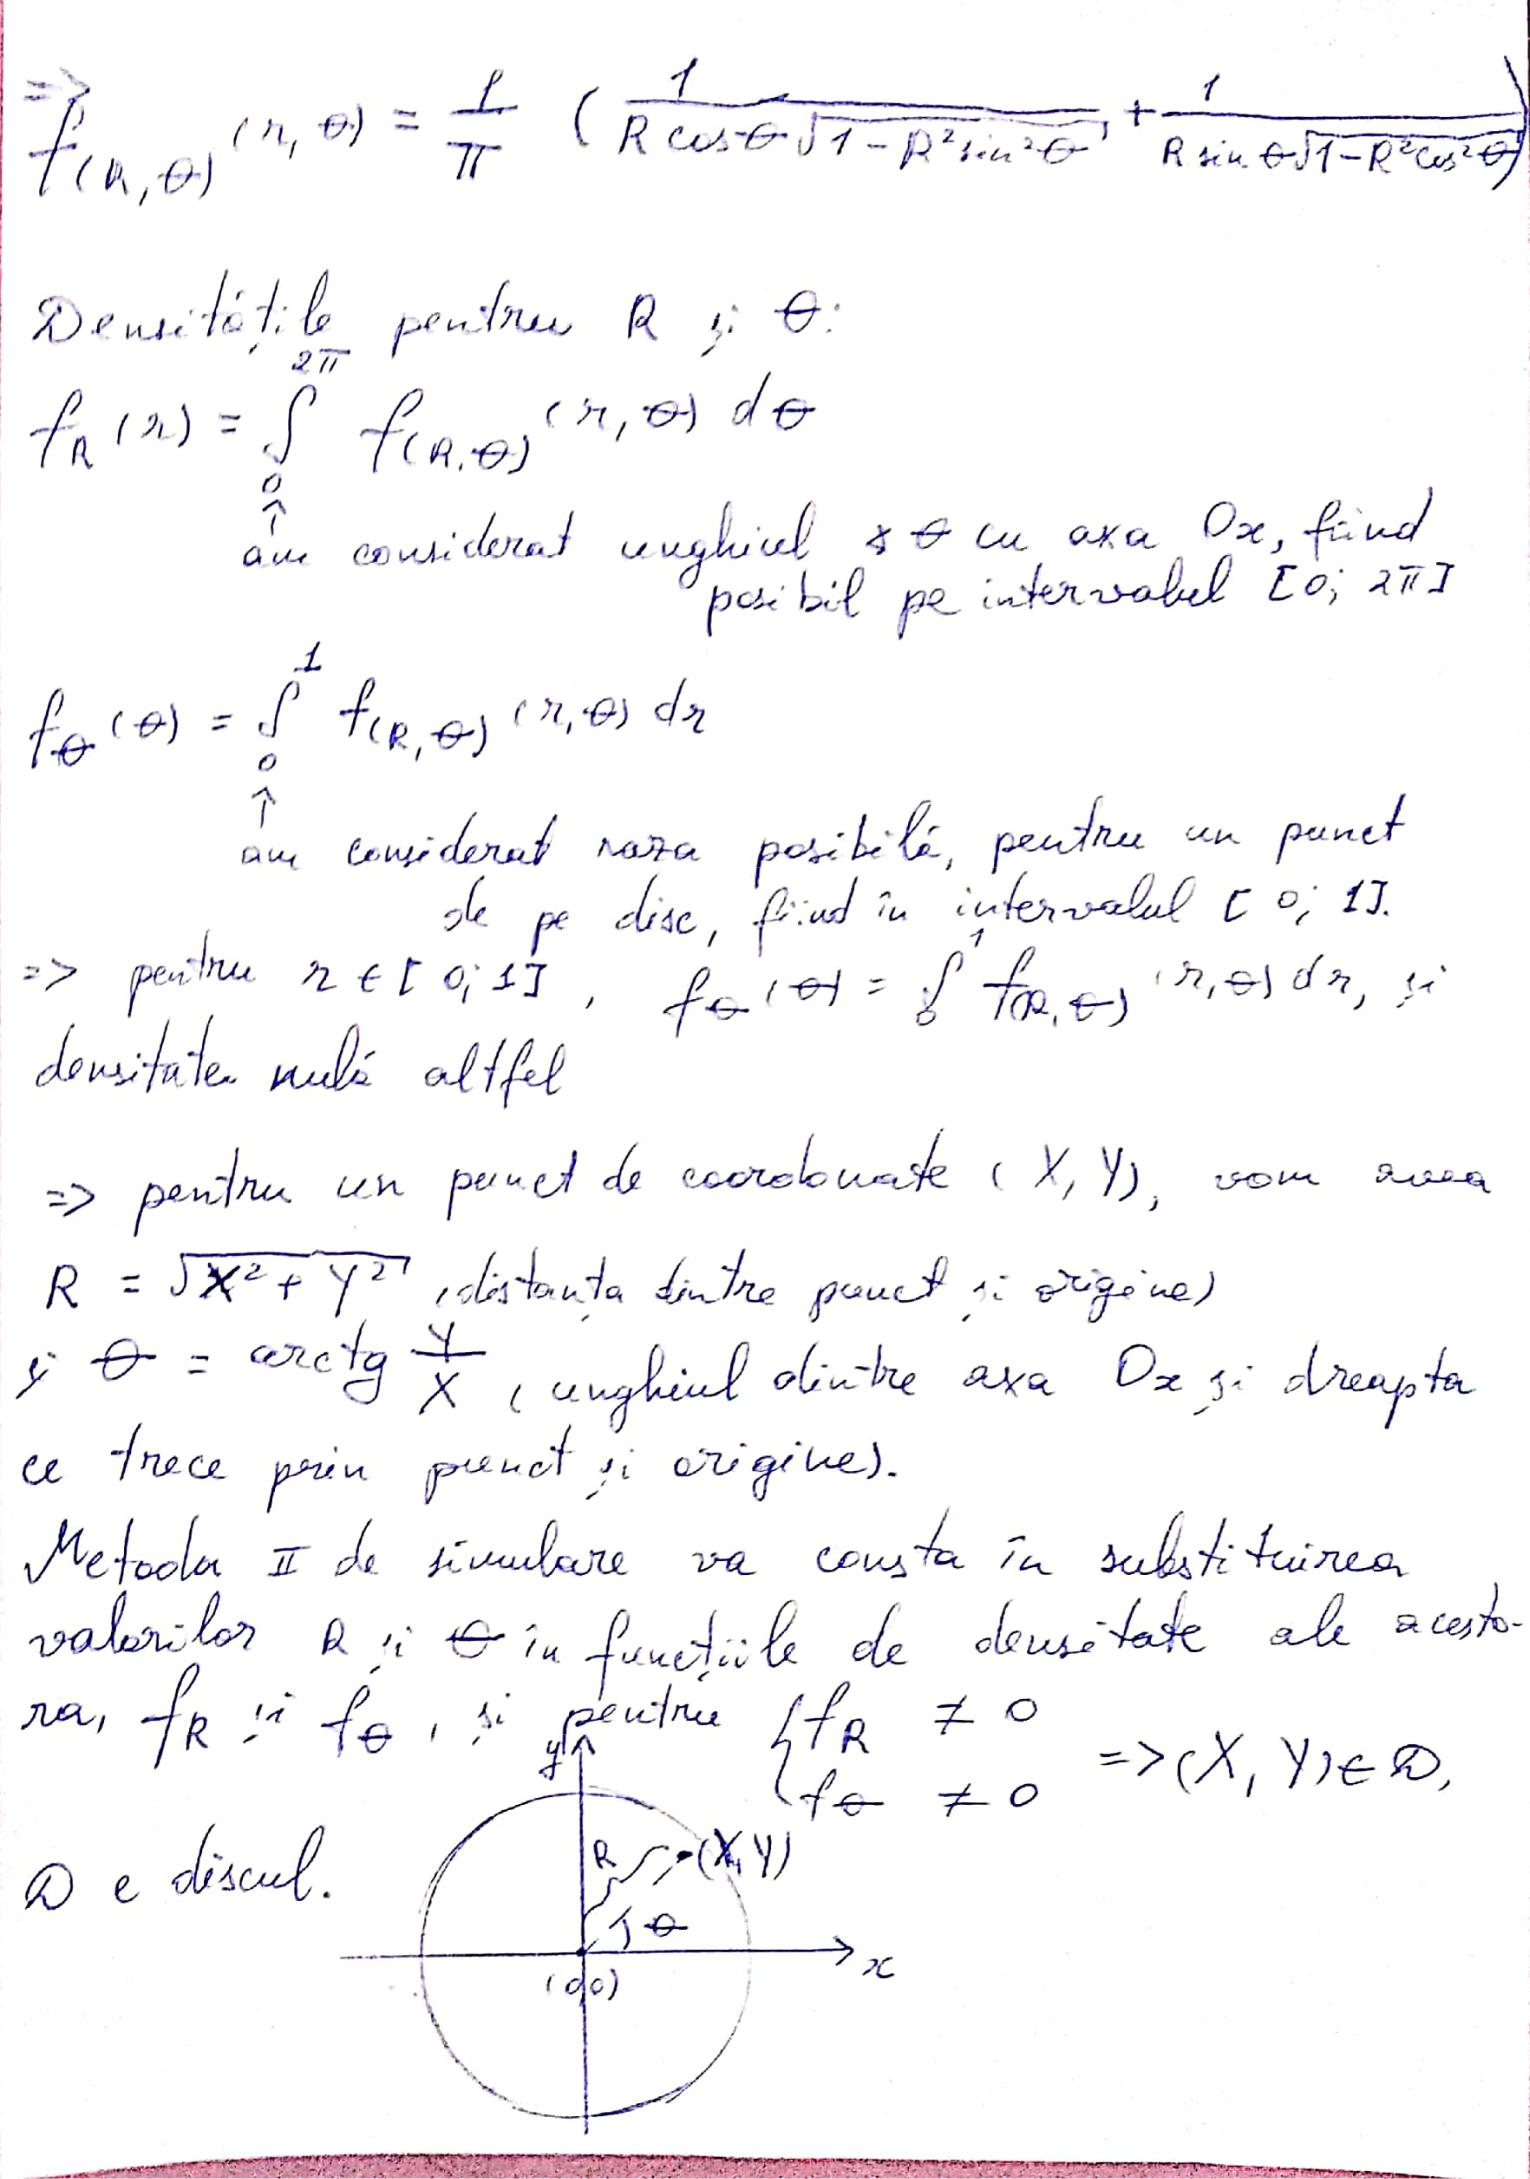 =>
f(R,θ) (r, θ) = 1/π ( 1/(R cosθ √(1-R² sin²θ)) + 1/(R sin θ √(1-R² cos² θ)) )
Densitățile pentru R și θ:
fR (r) = ∫₀^2π f(R,θ) (r, θ) dθ
↑
am considerat unghiul θ cu axa Ox, fiind
posibil pe intervalul [0; 2π]
fθ (θ) = ∫₀^1 f(R,θ) (r,θ) dr
↑
am considerat raza posibilă, pentru un punct
de pe disc, fiind în intervalul [0; 1].
=> pentru r ∈ [0; 1], fθ (θ) = ∫₀^1 f(R,θ) (r,θ) dr, și
densitatea nulă altfel
=> pentru un punct de coordonate (X, Y), vom avea
R = √(X² + Y²) (distanța dintre punct și origine)
și θ = arctg Y/X (unghiul dintre axa Ox și dreapta
ce trece prin punct și origine).
Metoda II de simulare va consta în substituirea
valorilor R și θ în funcțiile de densitate ale acesto-
ra, fR și fθ, și pentru { fR ≠ 0
fθ ≠ 0 => (X, Y) ∈ D,
D e discul.
y
R
(X, Y)
θ
x
(0,0)